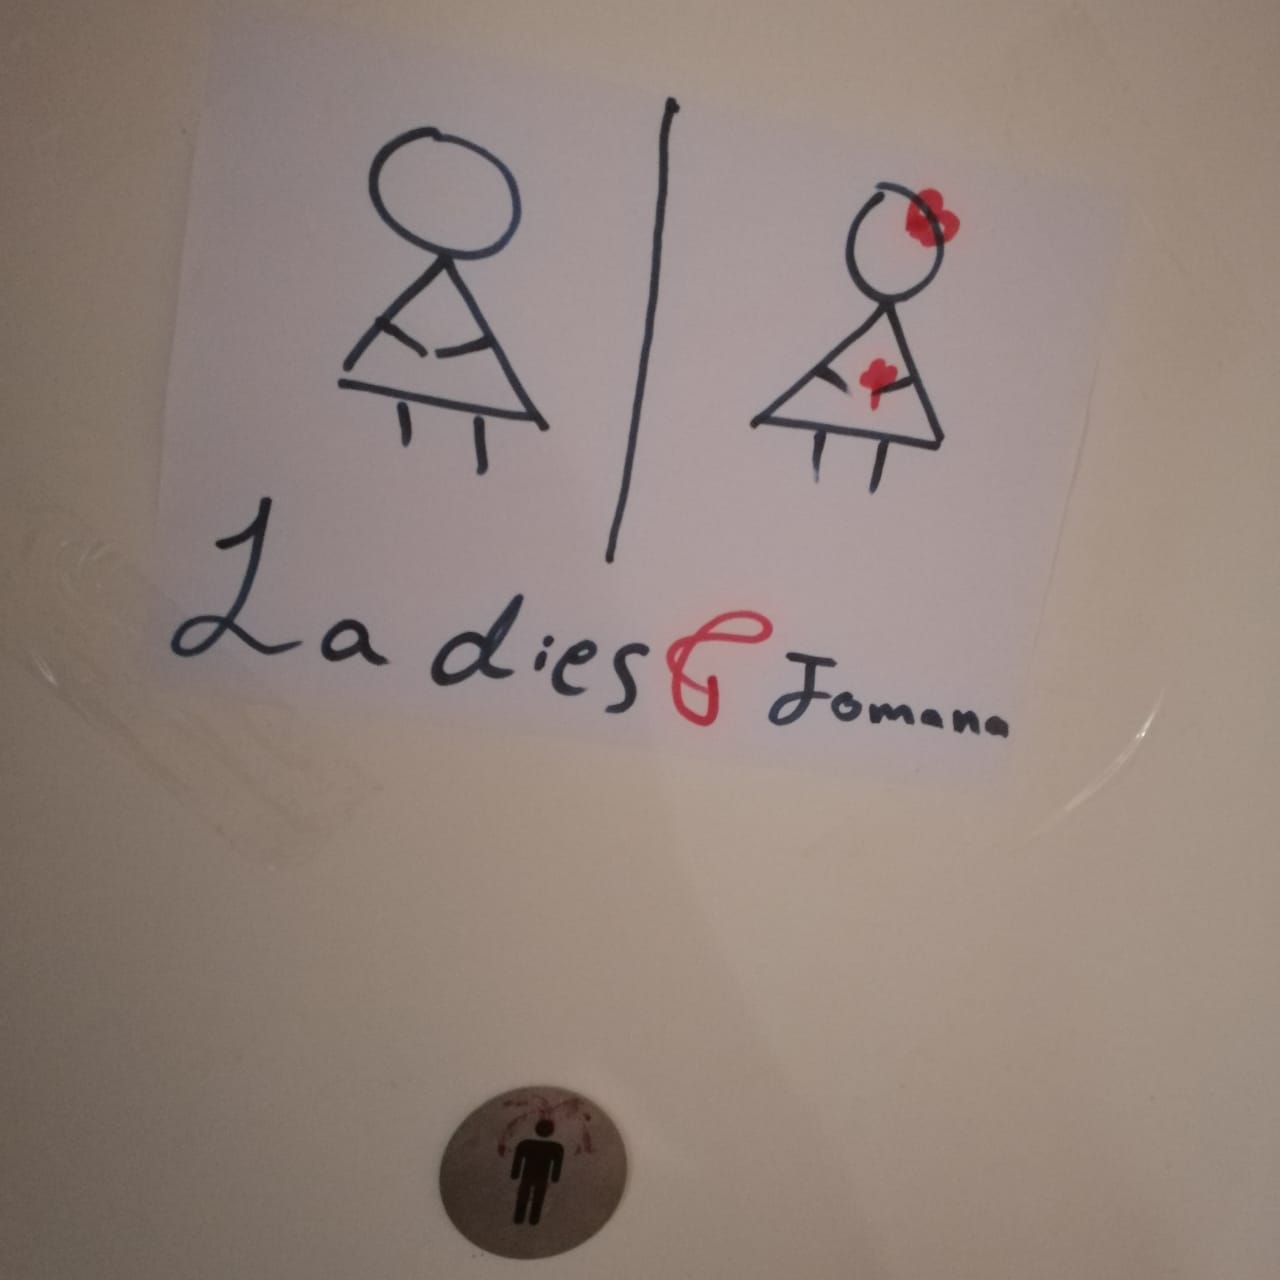 Ladies & Jomana